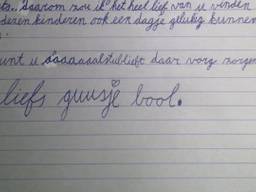 daarom zou ik het heel lief van u vinden
deren kinderen ook een dagje gelukig kunnen
unt u daaaaalstublieft daar vorg zorgen
liefs guusje bool.